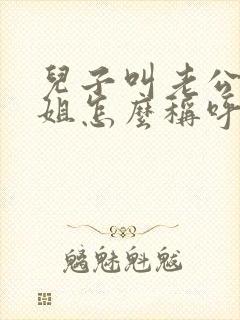 兒子叫老公
姐怎麼稱呼
魑魅魁魃